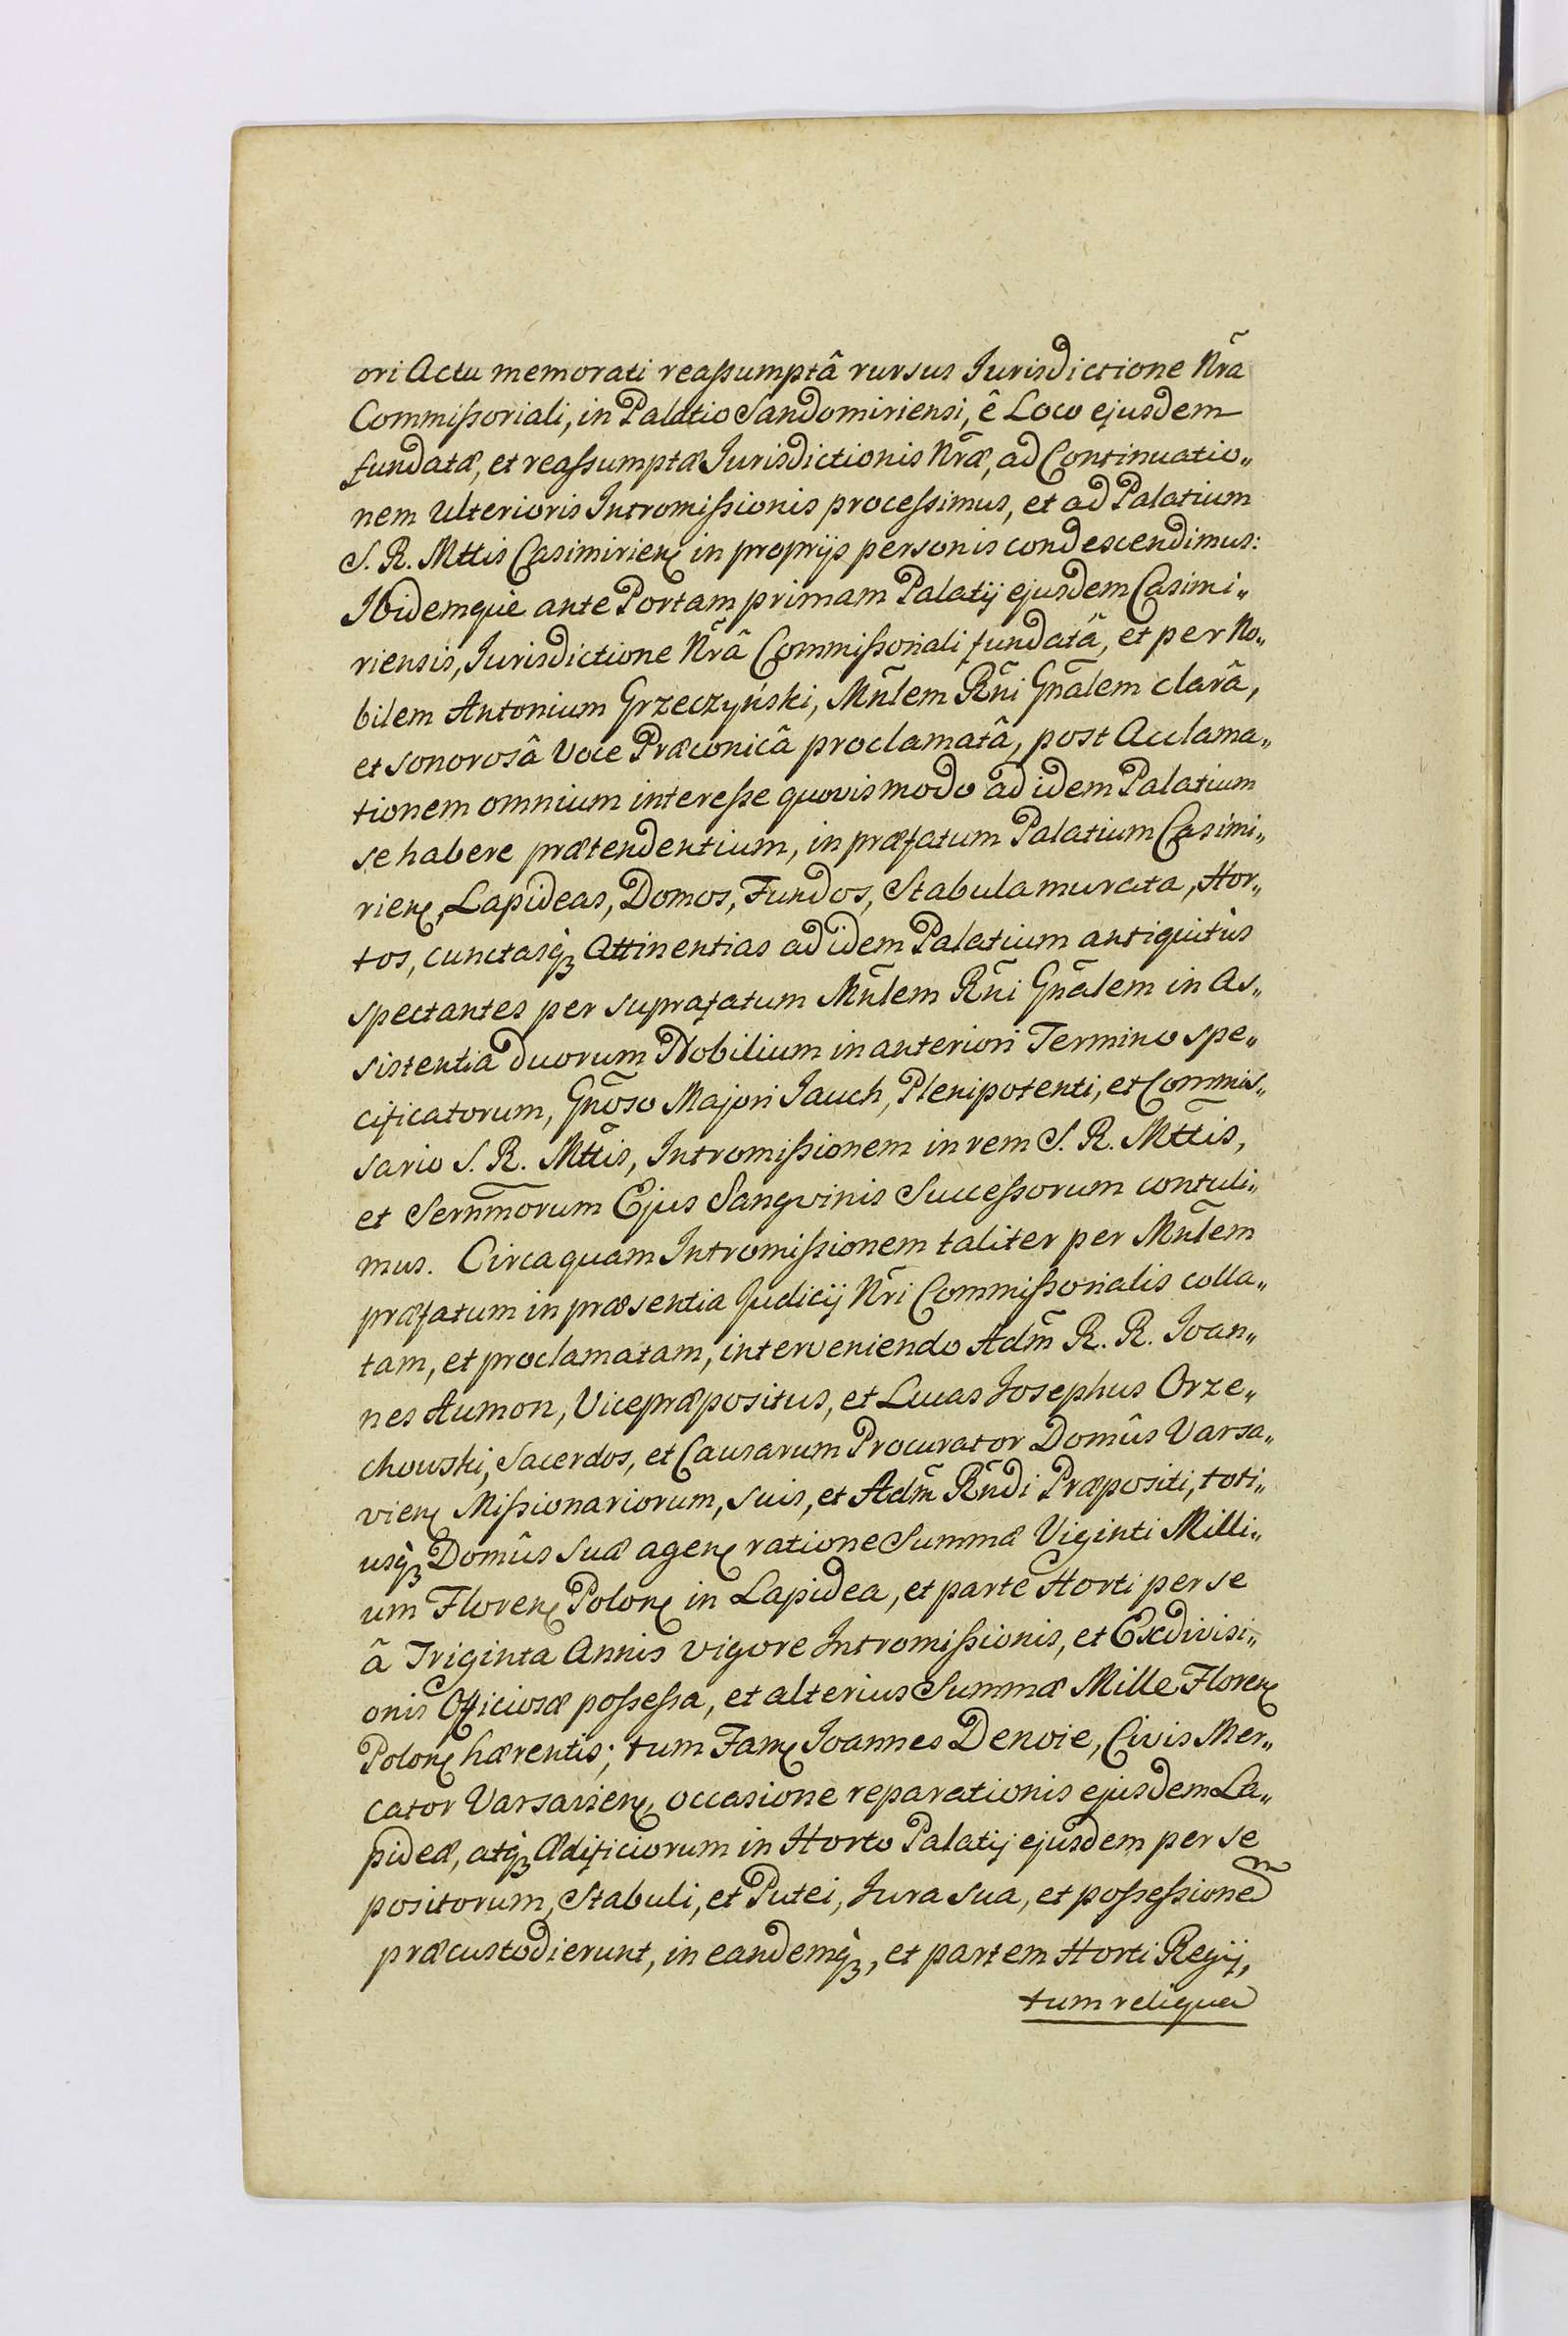 ori Actu memorati reassumptâ rursus Jurisdictione Nr̃a
Commissoriali, in Palatio Sandomiriensi, ê Loco ejusdem
fundatæ, et reassumptæ Jurisdictionis Nr̃æ, ad Continuatio„
nem Ulterioris Intromissionis processimus, et ad Palatium
S. R. Mttis Casimirieñ in proprijs personis condescendimus:
Ibidemque ante Portam primam Palatij ejusdem Casimi„
riensis, Jurisdictione Nr̃â Commissoriali fundatâ, et per No„
bilem Antonium Grzeczyński, Mñlem Rñi Gñalem clarâ,
et sonorosâ Voce Præconicâ proclamatâ, post Acclama„
tionem omnium interesse quovis modo ad idem Palatium
se habere prætendentium, in præfatum Palatium Casimi„
rieñ, Lapideas, Domos, Fundos, Stabula murata, Hor„
tos, cunctasq̀ꝫ Attinentias ad idem Palatium antiquitùs
spectantes per suprafatum Mñlem Rñi Gñalem in As„
sistentia duorum Nobilium in anteriori Termino spe„
cificatorum, Gñoso Majori Jauch, Plenipotenti, et Commis„
sario S. R. Mttis, Intromissionem in rem S. R. Mttis,
et Sernm̃orum Ejus Sangvinis Successorum contuli„
mus. Circa quam Intromissionem taliter per Mñlem
præfatum in præsentia Judicij Nr̃i Commissorialis colla„
tam, et proclamatam, interveniendo Adm̃ R. R. Joan„
nes Aumon, Vicepræpositus, et Lucas Josephus Orze„
chowski, Sacerdos, et Causarum Procurator Domûs Varsa„
vieñ Missionariorum, suis, et Adm̃ Rñdi Præpositi, toti„
usq̀ꝫ Domûs suæ ageñ ratione Summæ Viginti Milli„
um Floreñ Poloñ in Lapidea, et parte Horti per se
â Triginta Annis vigore Intromissionis, et Exdivisi„
onis Officiosæ possessa, et alterius Summæ Mille Floreñ
Poloñ hærentis; tum Fam̃ Joannes Denoie, Civis Mer„
cator Varsavieñ, occasione reparationis ejusdem La„
pideæ, atq̀ꝫ Ædificiorum in Horto Palatij ejusdem per se
positorum, Stabuli, et Putei, Jura sua, et possessionem
præcustodierunt, in eandemq̀ꝫ, et partem Horti Regij,
tum reliqua